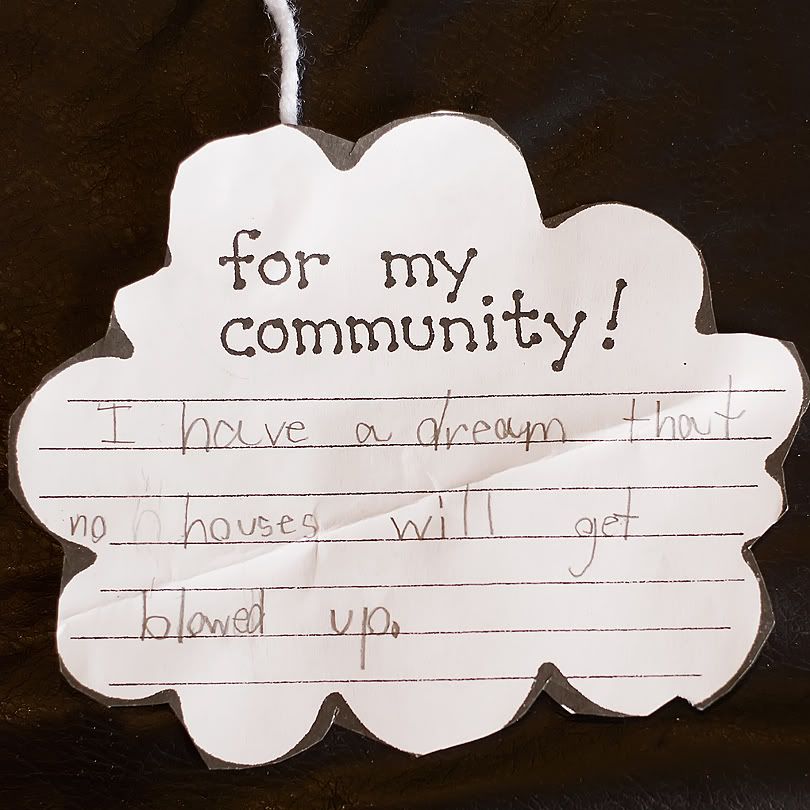 for my
community!
I have a dream that
no houses will get
blowed up.